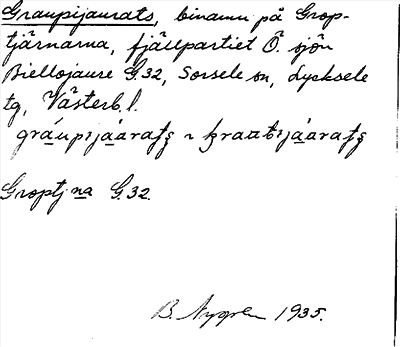 Graupijaurats, binamn på Grop-
tjärnarna, fjällpartiet Ö. sjön
Biellojaure G.32, Sorsele sn, Lycksele
tg, Västerb. l.
Groptjna G.32.
B. Nygren 1935.